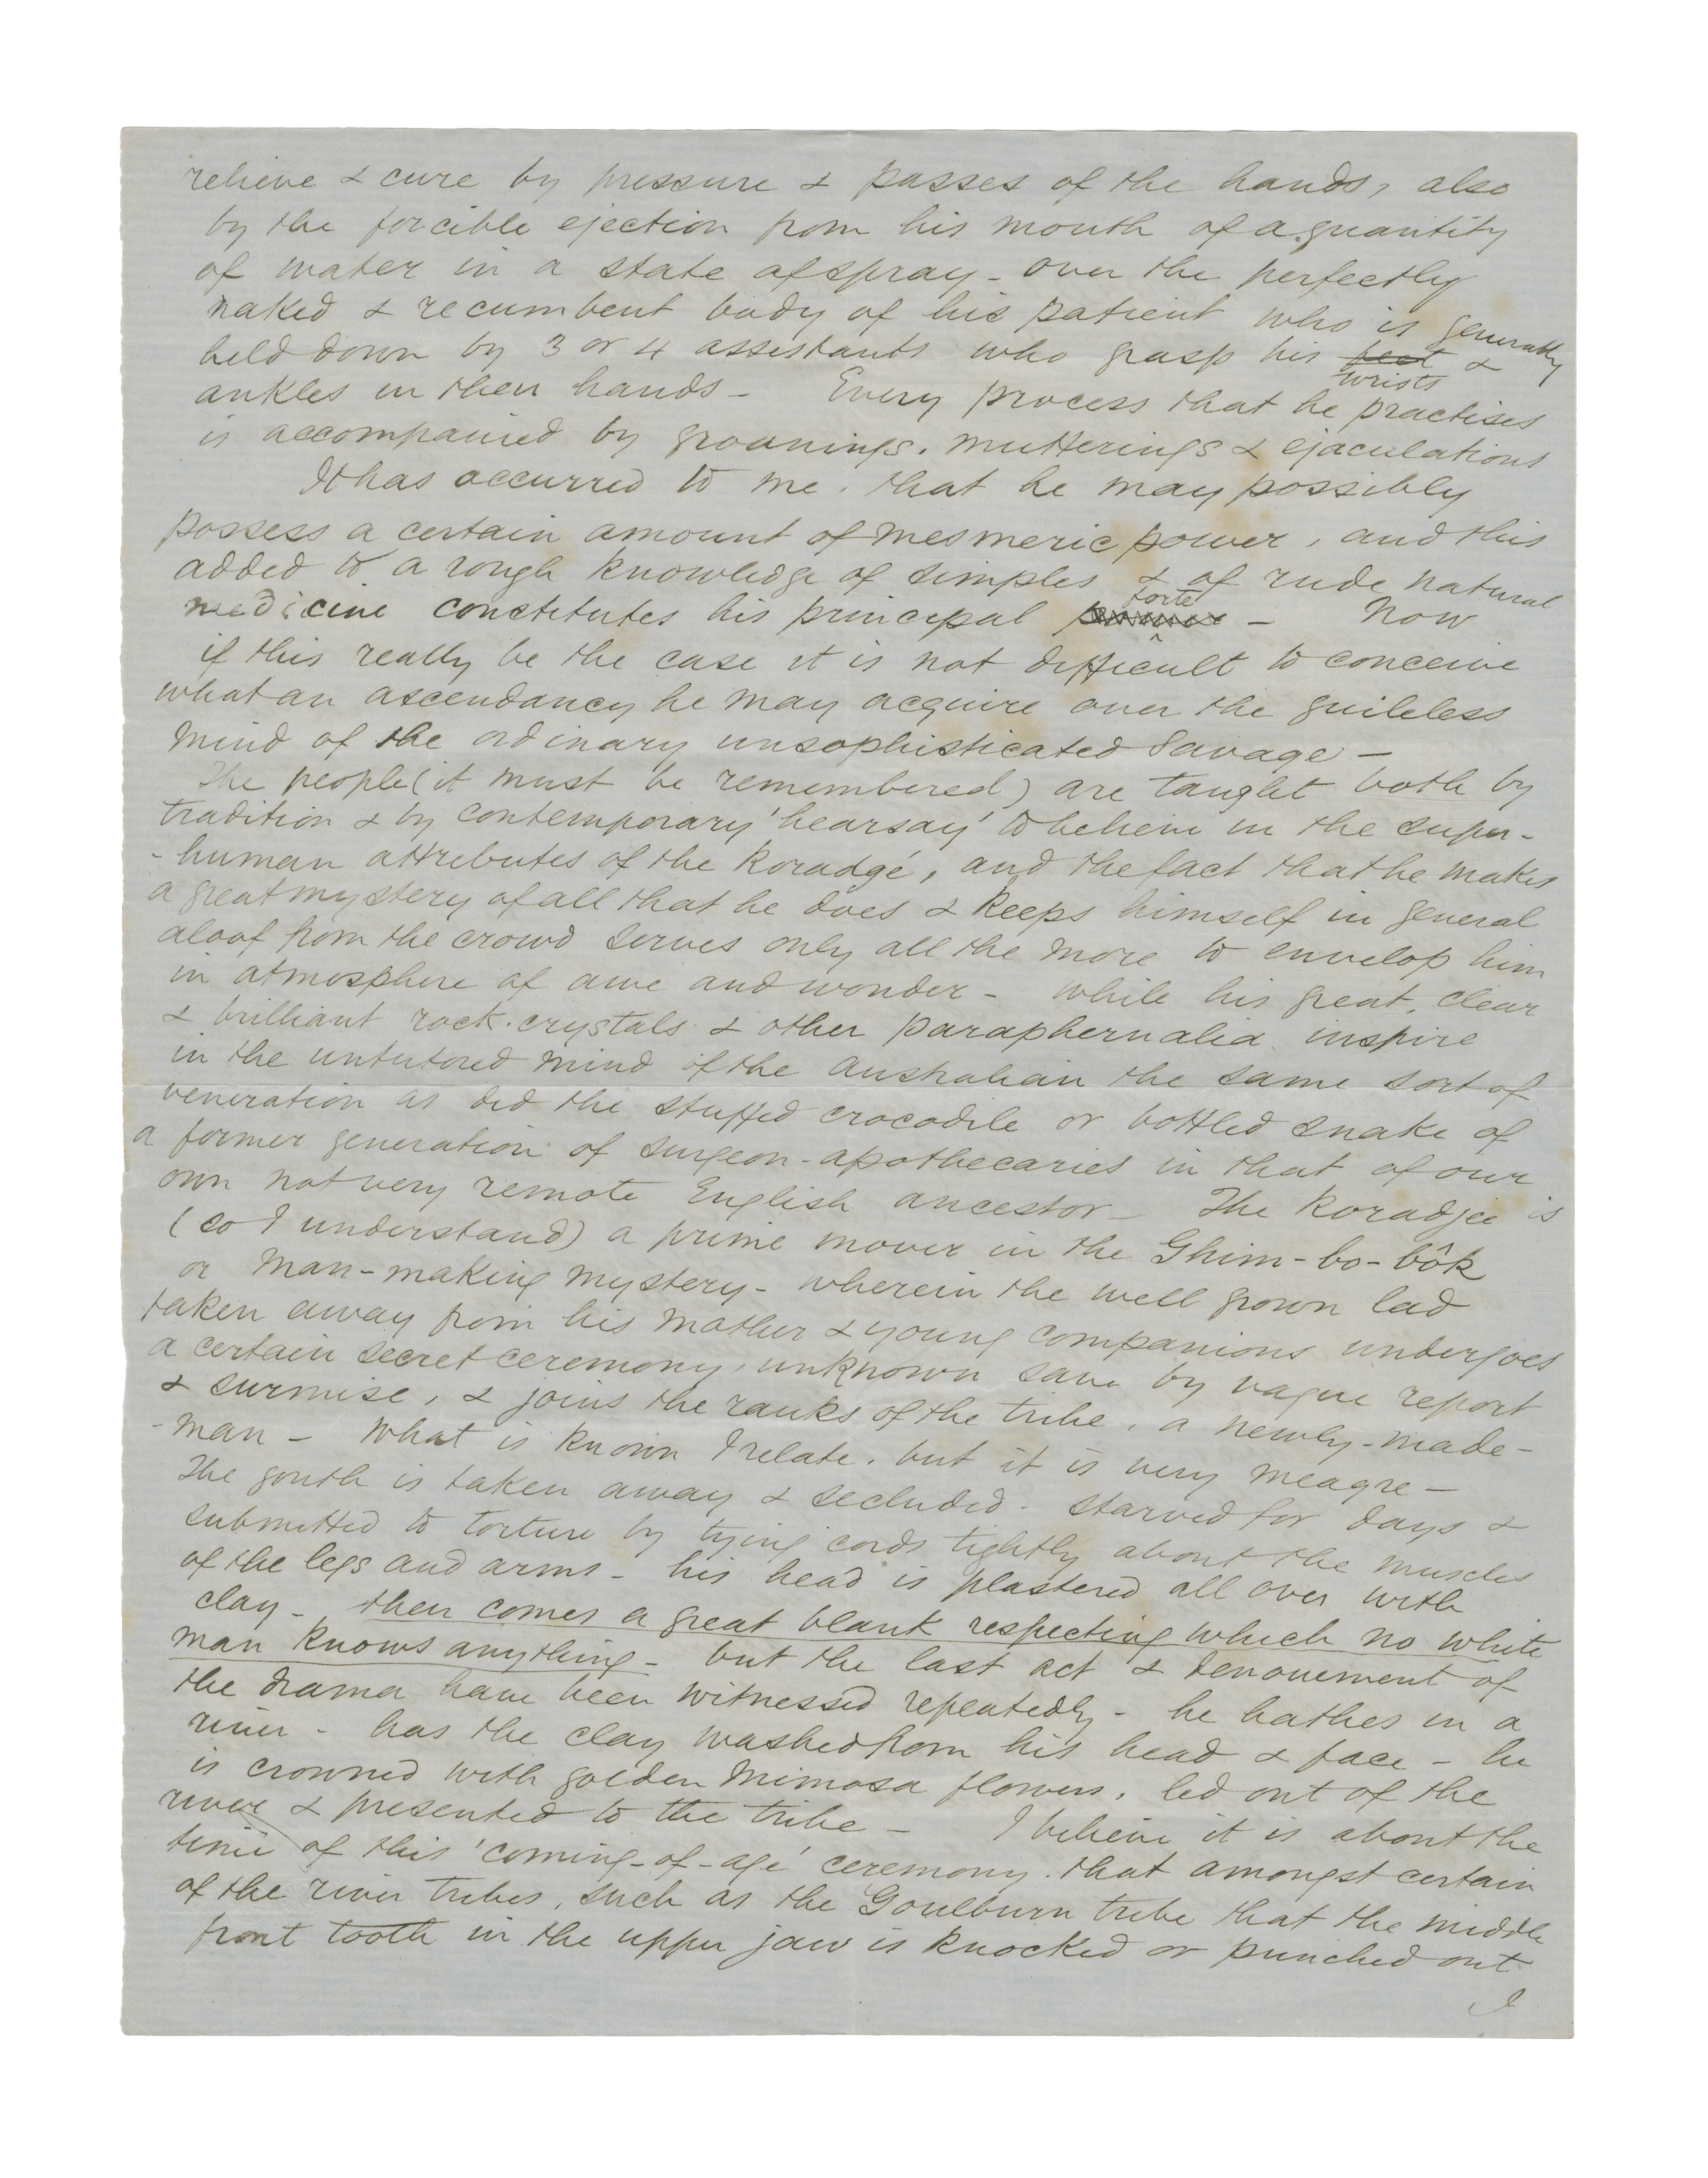 relieve & cure by pressure & passes of the hands, also
by the forcible ejection from his mouth of a quantity
of water in a state of spray - over the perfectly
naked & recumbent body of his patient who is generally
held down by 3 or 4 assistants who grasp his feet wrists &
ankles in their hands - Every process that he practises
is accompanied by groanings. mutterings & ejaculations
It has occurred to me. that he may possibly
possess a certain amount of mesmeric power, and this
added to a rough knowledge of simples & of rude natural
medicine constitutes his principal forte - Now
if this really be the case it is not difficult to conceive
what an ascendancy he may acquire over the guileless
mind of the ordinary unsophisticated Savage -
The people (it must be remembered) are taught both by
tradition & by contemporary 'hearsay' to believe in the super-
-human attributes of the Koradgé, and the fact that he makes
a great mystery of all that he does & keeps himself in general
aloof from the crowd serves only all the more to envelop him
in atmosphere of awe and wonder - while his great, clear
& brilliant rock-crystals & other paraphernalia inspire
in the untutored mind of the Australian the same sort of
veneration as did the stuffed crocodile or bottled snake of
a former generation of surgeon-apothecaries in that of our
own not very remote English ancestor - The Koradjee is
(so I understand) a prime mover in the Ghim-bo-bôk
or man-making mystery - wherein the well grown lad
taken away from his mother & young companions undergoes
a certain secret ceremony, unknown save by vague report
& surmise, & joins the ranks of the tribe, a newly-made-
-man - What is known I relate. but it is very meagre -
The youth is taken away & secluded. starved for days &
submitted to torture by tying cords tightly about the muscles
of the legs and arms - his head is plastered all over with
clay - then comes a great blank respecting which no white
man knows anything - but the last act & denouement of
the drama have been witnessed repeatedly - he bathes in a
river - has the clay washed from his head & face - he
is crowned with golden Mimosa flowers, led out of the
river & presented to the tribe - I believe it is about the
time of this 'coming-of-age' ceremony. that amongst certain
of the river tribes, such as the Goulburn tribe that the middle
front tooth in the upper jaw is knocked or punched out
I